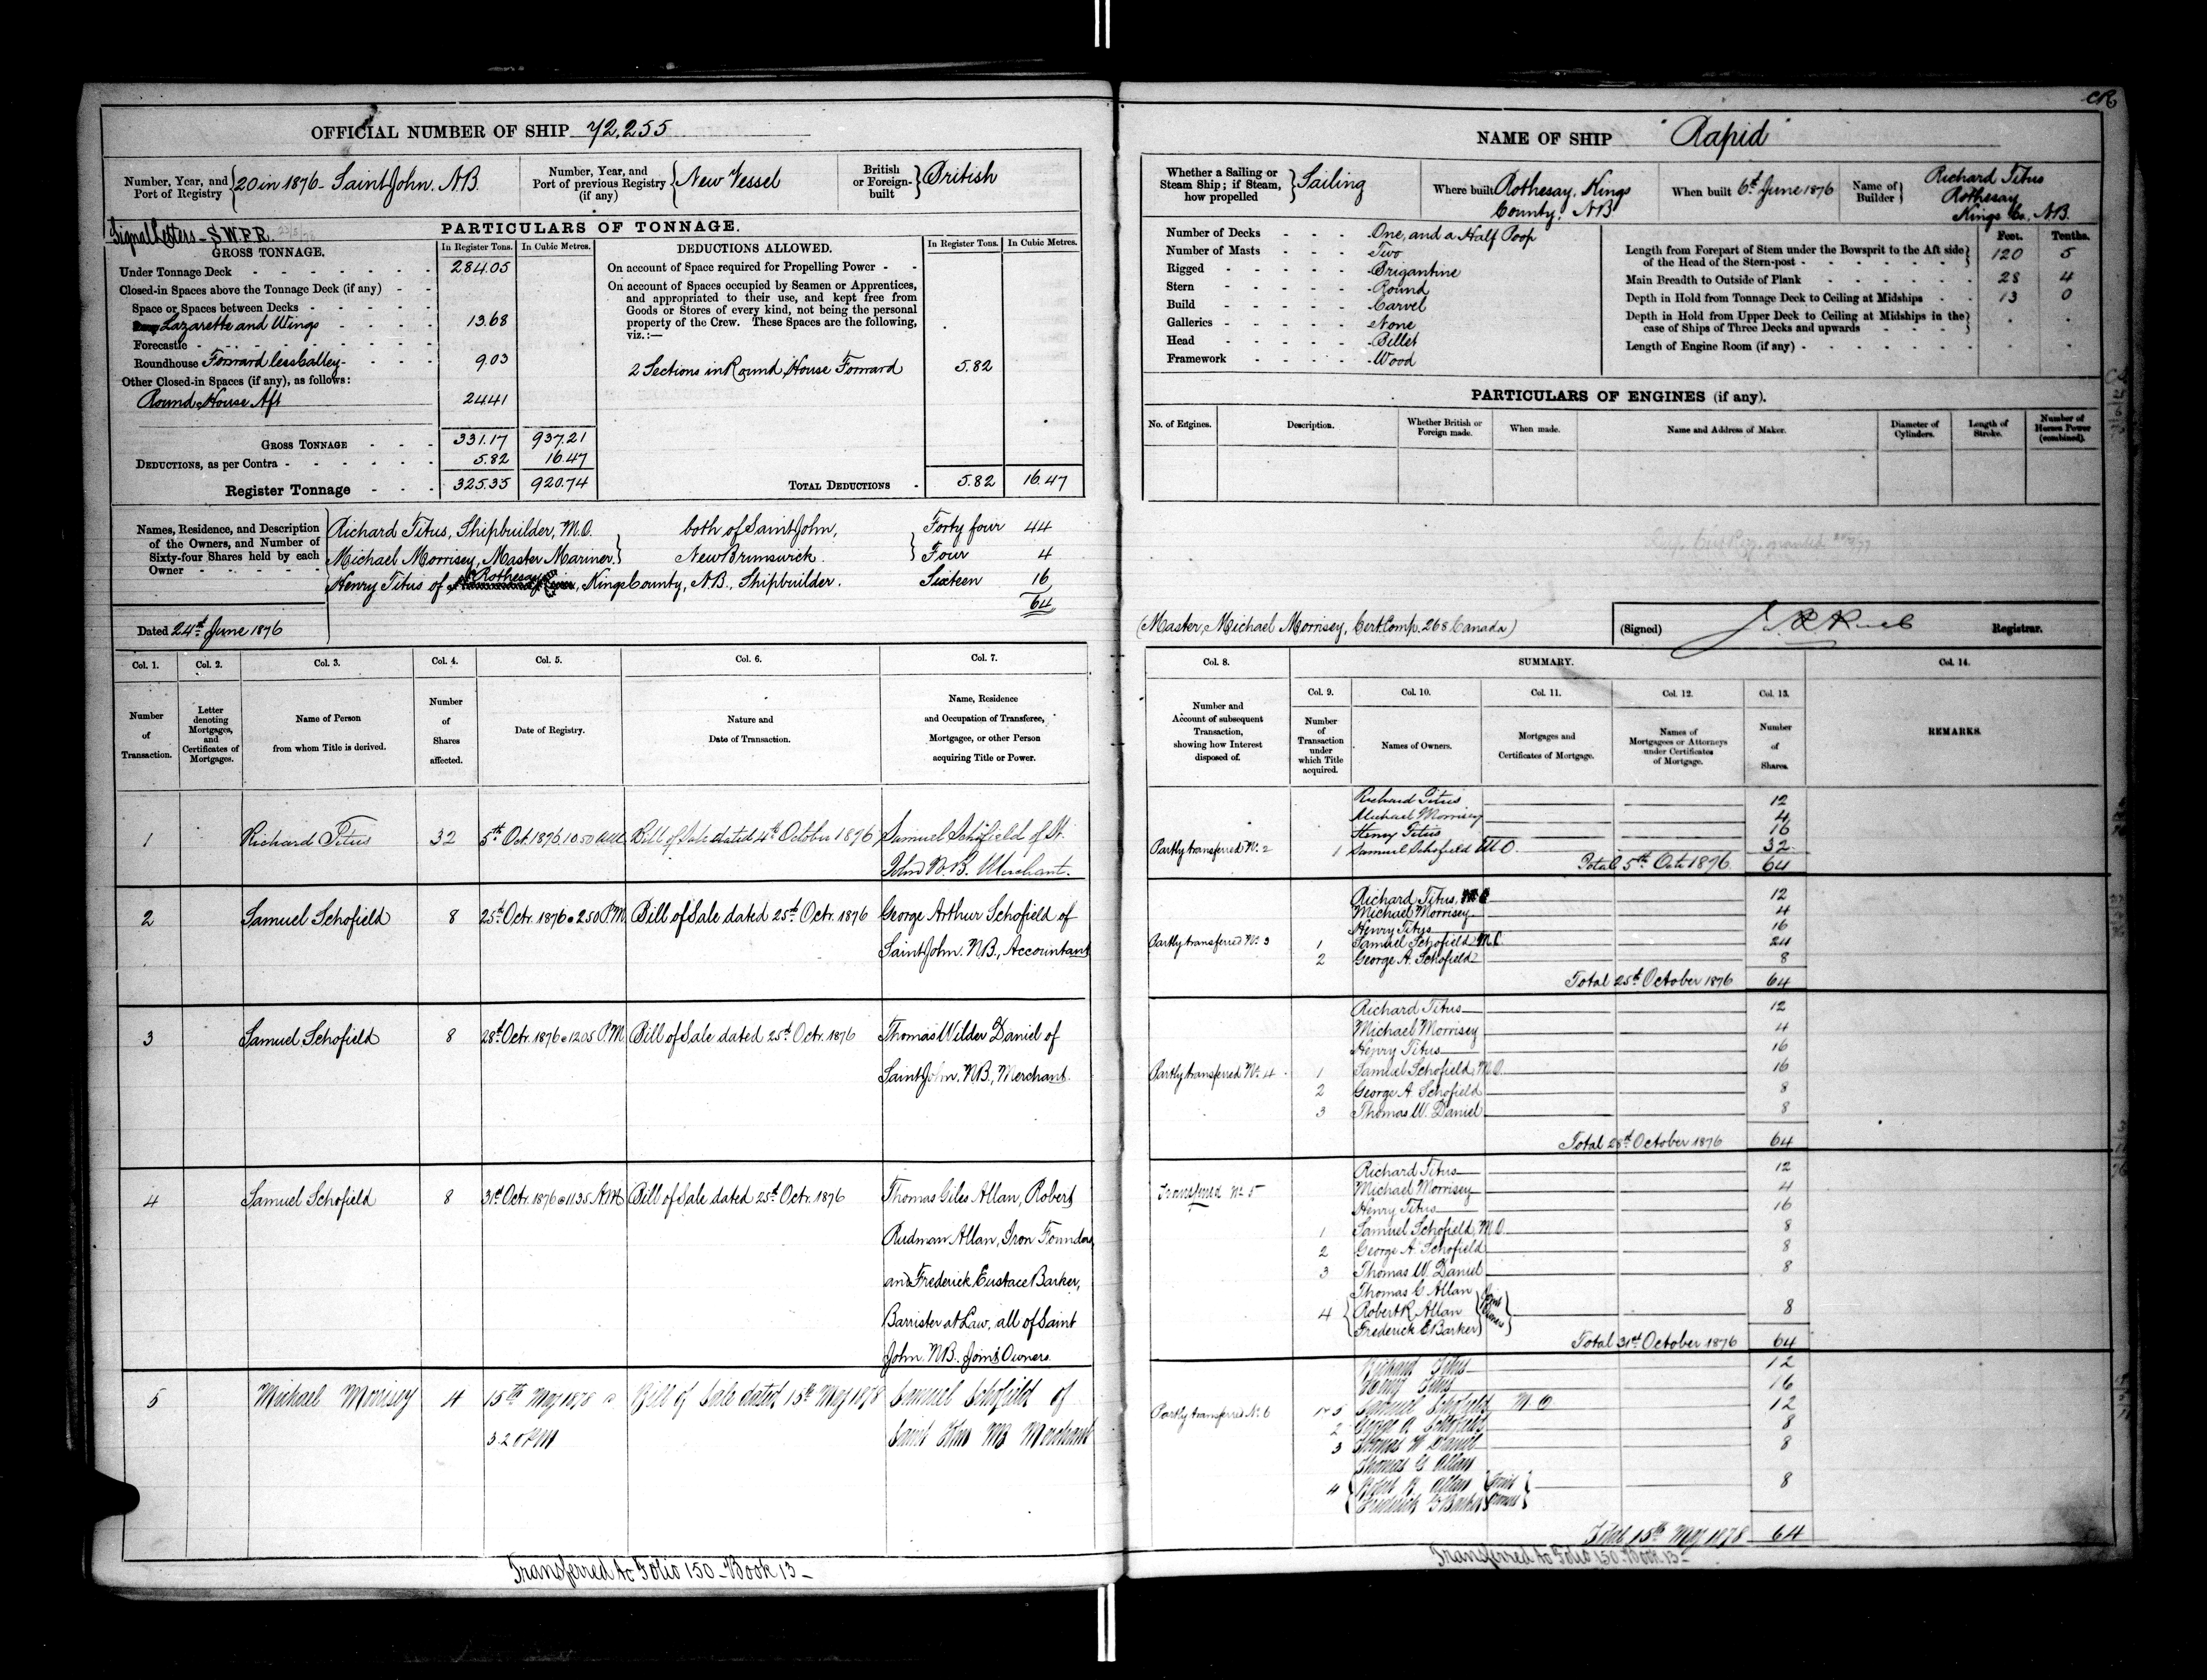 CR
OFFICIAL NUMBER OF SHIP 72,255
Number, Year, and Port of Registry 20 in 1876 - Saint John, N.B.
Number, Year, and Port of previous Registry (if any) New Vessel
British or Foreign-built British
Signal Letters - S.W.P.R.
PARTICULARS OF TONNAGE.
GROSS TONNAGE. In Register Tons. In Cubic Metres.
Under Tonnage Deck 284.05
Closed-in Spaces above the Tonnage Deck (if any)
Space or Spaces between Decks
Lazarette and Wings 13.68
Forecastle
Roundhouse Forward less Galley 9.03
Other Closed-in Spaces (if any), as follows:
Round House Aft 24.41
GROSS TONNAGE 331.17 937.21
DEDUCTIONS, as per Contra 5.82 16.47
Register Tonnage 325.35 920.74
DEDUCTIONS ALLOWED. In Register Tons. In Cubic Metres.
On account of Space required for Propelling Power
On account of Spaces occupied by Seamen or Apprentices,
and appropriated to their use, and kept free from
Goods or Stores of every kind, not being the personal
property of the Crew. These Spaces are the following,
viz.:—
2 Sections in Round House Forward 5.82
TOTAL DEDUCTIONS 5.82 16.47
Names, Residence, and Description of the Owners, and Number of Sixty-four Shares held by each Owner
Richard Titus, Shipbuilder, M.O. both of Saint John, Forty four 44
Michael Morrisey, Master Mariner New Brunswick. Four 4
Henry Titus of Rothesay, Kings County, N.B., Shipbuilder. Sixteen 16
64
Dated 24th June 1876
Col. 1. Col. 2. Col. 3. Col. 4. Col. 5. Col. 6. Col. 7.
Number of Transaction.
Letter denoting Mortgages, and Certificates of Mortgages.
Name of Person from whom Title is derived.
Number of Shares affected.
Date of Registry.
Nature and Date of Transaction.
Name, Residence and Occupation of Transferee, Mortgagee, or other Person acquiring Title or Power.
1 Richard Titus 32 5th Oct. 1876. 10.50 A.M. Bill of Sale dated 4th October 1876 Samuel Schofield of St.
John N.B. Merchant.
2 Samuel Schofield 8 25th Octr. 1876 @ 2.50 P.M. Bill of Sale dated 25th Octr. 1876 George Arthur Schofield of
Saint John. N.B., Accountant
3 Samuel Schofield 8 28th Octr. 1876 @ 12.05 P.M. Bill of Sale dated 25th Octr. 1876 Thomas Wilder Daniel of
Saint John, N.B., Merchant.
4 Samuel Schofield 8 31st Octr. 1876 @ 11.35 A.M. Bill of Sale dated 25th Octr. 1876 Thomas Giles Allan, Robert
Rudman Allan, Iron Founders
and Frederick Eustace Barker,
Barrister at Law, all of Saint
John. N.B. Joint Owners.
5 Michael Morrisey 4 15th May 1878 @ Bill of Sale dated 15th May 1878 Samuel Schofield of
3.20 PM Saint John NB Merchant
Transferred to Folio 150 - Book 13 -
NAME OF SHIP "Rapid"
Whether a Sailing or Steam Ship; if Steam, how propelled Sailing
Where built Rothesay, Kings County, N.B.
When built 6th June 1876
Name of Builder Richard Titus Rothesay Kings Co., N.B.
Number of Decks One, and a Half Poop
Number of Masts Two
Rigged Brigantine
Stern Round
Build Carvel
Galleries None
Head Billet
Framework Wood
Feet. Tenths.
Length from Forepart of Stem under the Bowsprit to the Aft side of the Head of the Stern-post 120 5
Main Breadth to Outside of Plank 28 4
Depth in Hold from Tonnage Deck to Ceiling at Midships 13 0
Depth in Hold from Upper Deck to Ceiling at Midships in the case of Ships of Three Decks and upwards
Length of Engine Room (if any)
PARTICULARS OF ENGINES (if any).
No. of Engines. Description. Whether British or Foreign made. When made. Name and Address of Maker. Diameter of Cylinders. Length of Stroke. Number of Horses Power (combined).
(Master, Michael Morrisey, Cert. Comp. 268 Canada)
(Signed) Registrar.
Col. 8. SUMMARY. Col. 14.
Col. 9. Col. 10. Col. 11. Col. 12. Col. 13.
Number and Account of subsequent Transaction, showing how Interest disposed of.
Number of Transaction under which Title acquired.
Names of Owners.
Mortgages and Certificates of Mortgage.
Names of Mortgagees or Attorneys under Certificates of Mortgage.
Number of Shares.
REMARKS.
Richard Titus 12
Michael Morrisey 4
Henry Titus 16
Partly transferred No. 2 1 Samuel Schofield M.O. 32
Total 5th Octr 1876. 64
Richard Titus, 12
Michael Morrisey 4
Henry Titus 16
Partly transferred No. 3 1 Samuel Schofield M.O. 24
2 George A. Schofield 8
Total 25th October 1876 64
Richard Titus 12
Michael Morrisey 4
Henry Titus 16
Partly transferred No. 4 1 Samuel Schofield, M.O. 16
2 George A. Schofield 8
3 Thomas W. Daniel 8
Total 28th October 1876 64
Richard Titus 12
Transferred No. 5 Michael Morrisey 4
Henry Titus 16
1 Samuel Schofield, M.O. 8
2 George A. Schofield 8
3 Thomas W. Daniel 8
Thomas G. Allan
4 Robert R. Allan Joint Owners 8
Frederick E. Barker
Total 31st October 1876 64
Richard Titus 12
Henry Titus 16
Partly transferred No. 6 1 & 5 Samuel Schofield M.O 12
2 George A. Schofield 8
3 Thomas W Daniel 8
Thomas G Allan
4 Robert R. Allan Joint Owners 8
Frederick E Barker
Total 15th May 1878 64
Transferred to Folio 150 - Book 13 -